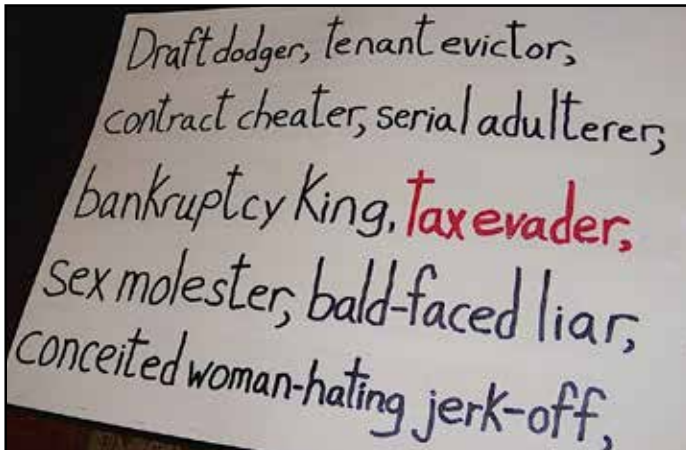 Draft dodger, tenant evictor,
contract cheater, serial adulterer,
bankruptcy King, tax evader,
sex molester, bald-faced liar,
conceited woman-hating jerk-off,